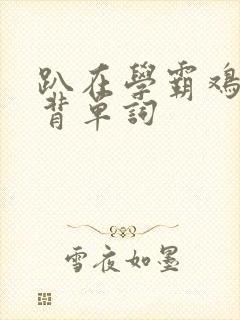 趴在學霸鸡
背单詞
雪夜如墨